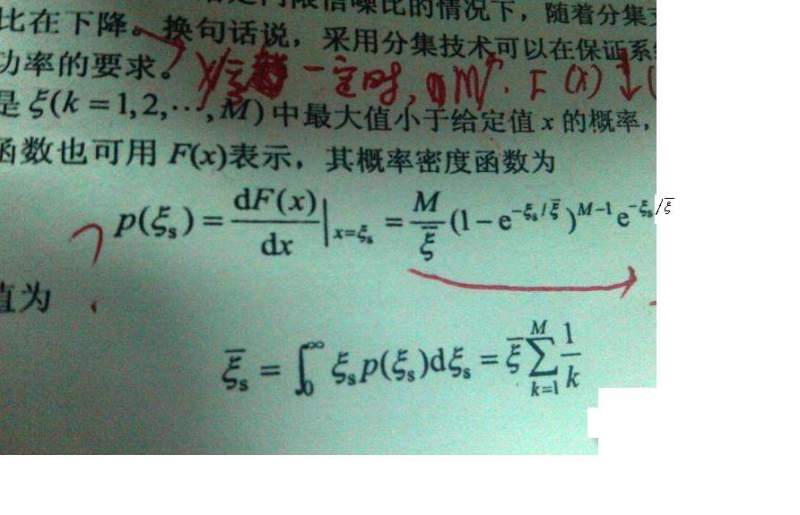 限信噪比的情况下，随着分集
比在下降。换句话说，采用分集技术可以在保证系
功率的要求。 一定时, M↑. F(x)↓(
是 ξ(k = 1,2,⋯,M) 中最大值小于给定值 x 的概率，
函数也可用 F(x)表示，其概率密度函数为
p(ξₛ) = dF(x)/dx |ₓ₌ξₛ = M/ξ̄ (1 − e^(−ξₛ/ξ̄))^(M−1) e^(−ξₛ/ξ̄)
值为
ξ̄ₛ = ∫₀^∞ ξₛp(ξₛ)dξₛ = ξ̄ ∑_(k=1)^M 1/k